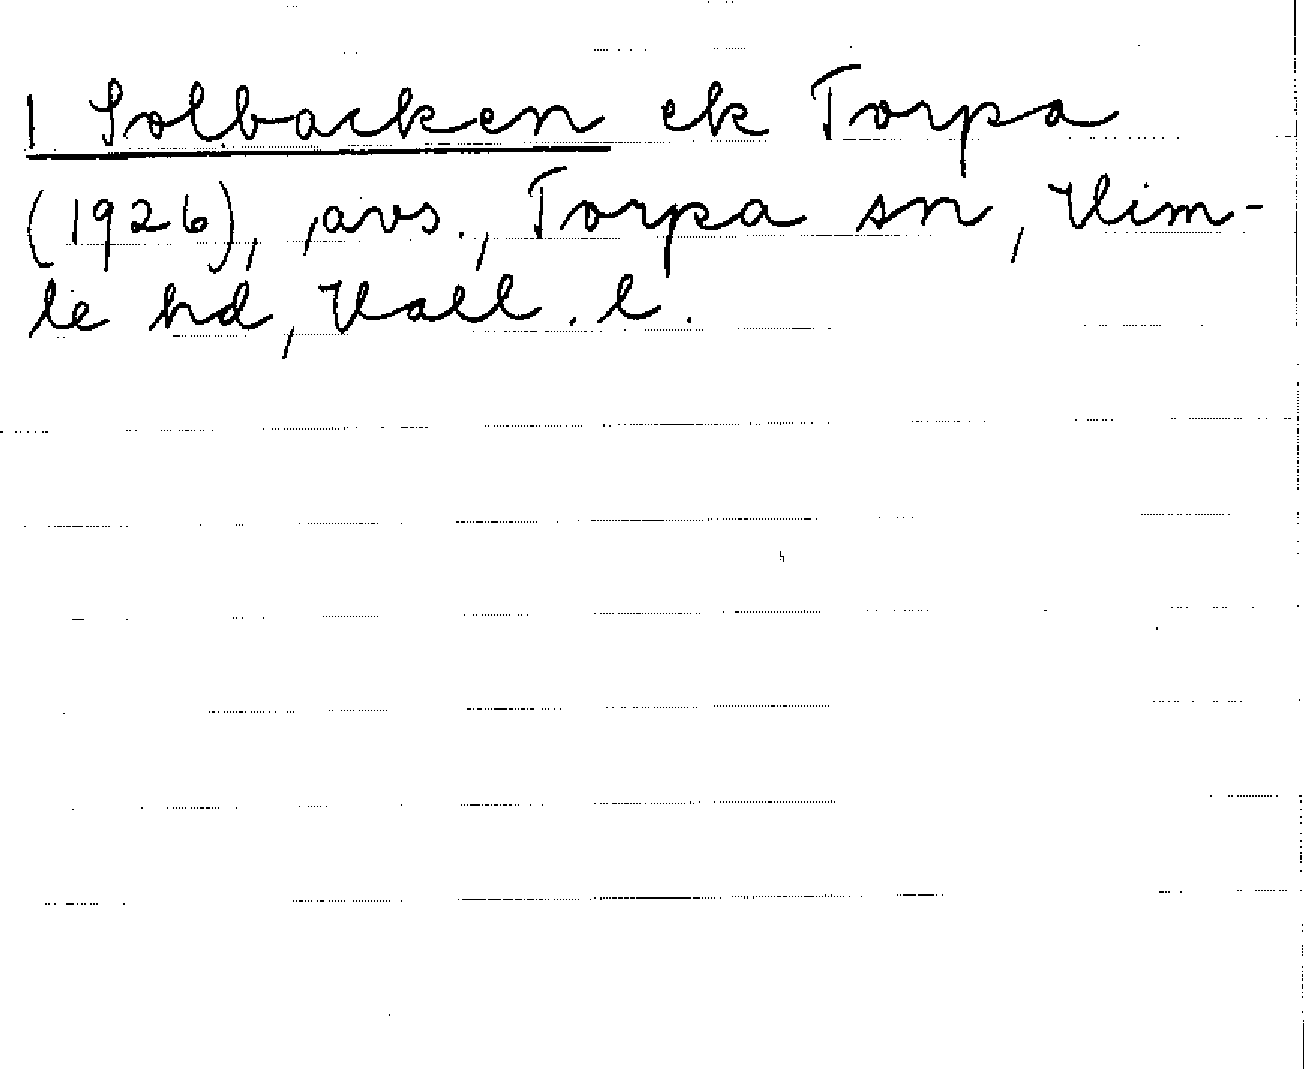 1 Solbacken ek Torpa
(1926), ,avs., Torpa sn, Vim-
le hd, Vall. l.